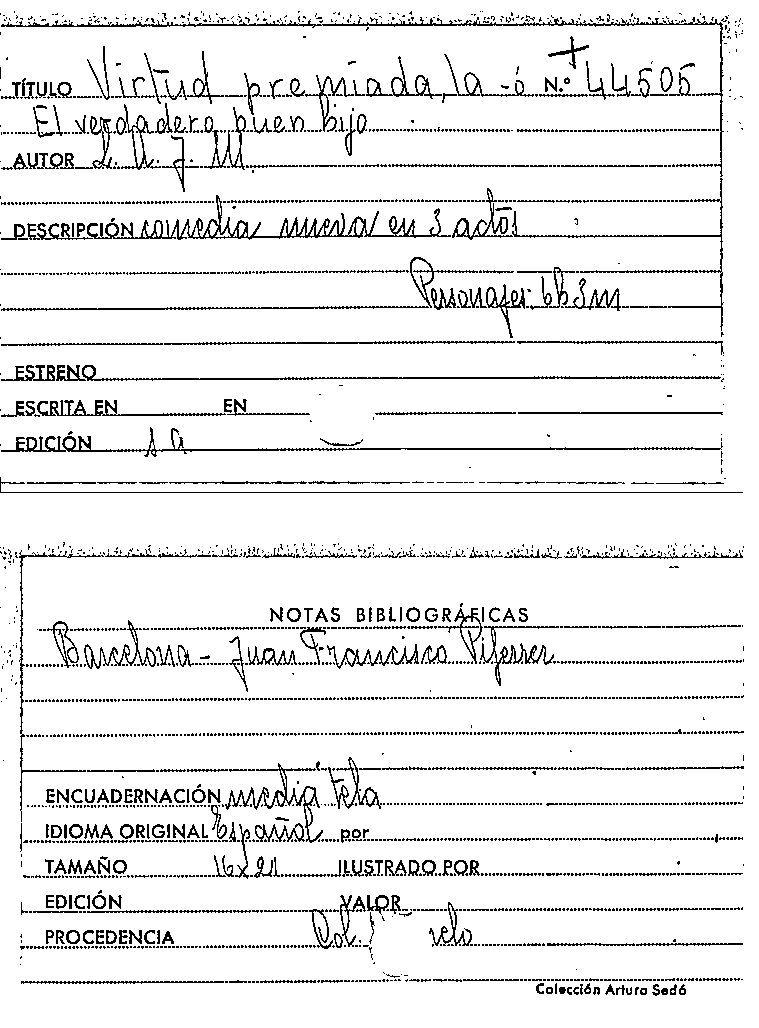 TÍTULO Virtud premiada, la -ó N.º 44505
El verdadero buen hijo
AUTOR L. A. J. M.
DESCRIPCIÓN comedia nueva en 3 actos
Personajes: 6h 3m
ESTRENO
ESCRITA EN EN
EDICIÓN s a
NOTAS BIBLIOGRÁFICAS
Barcelona - Juan Francisco Piferrer
ENCUADERNACIÓN media tela
IDIOMA ORIGINAL Español por
TAMAÑO 16x21 ILUSTRADO POR
EDICIÓN VALOR
PROCEDENCIA Col.
Colección Arturo Sedó